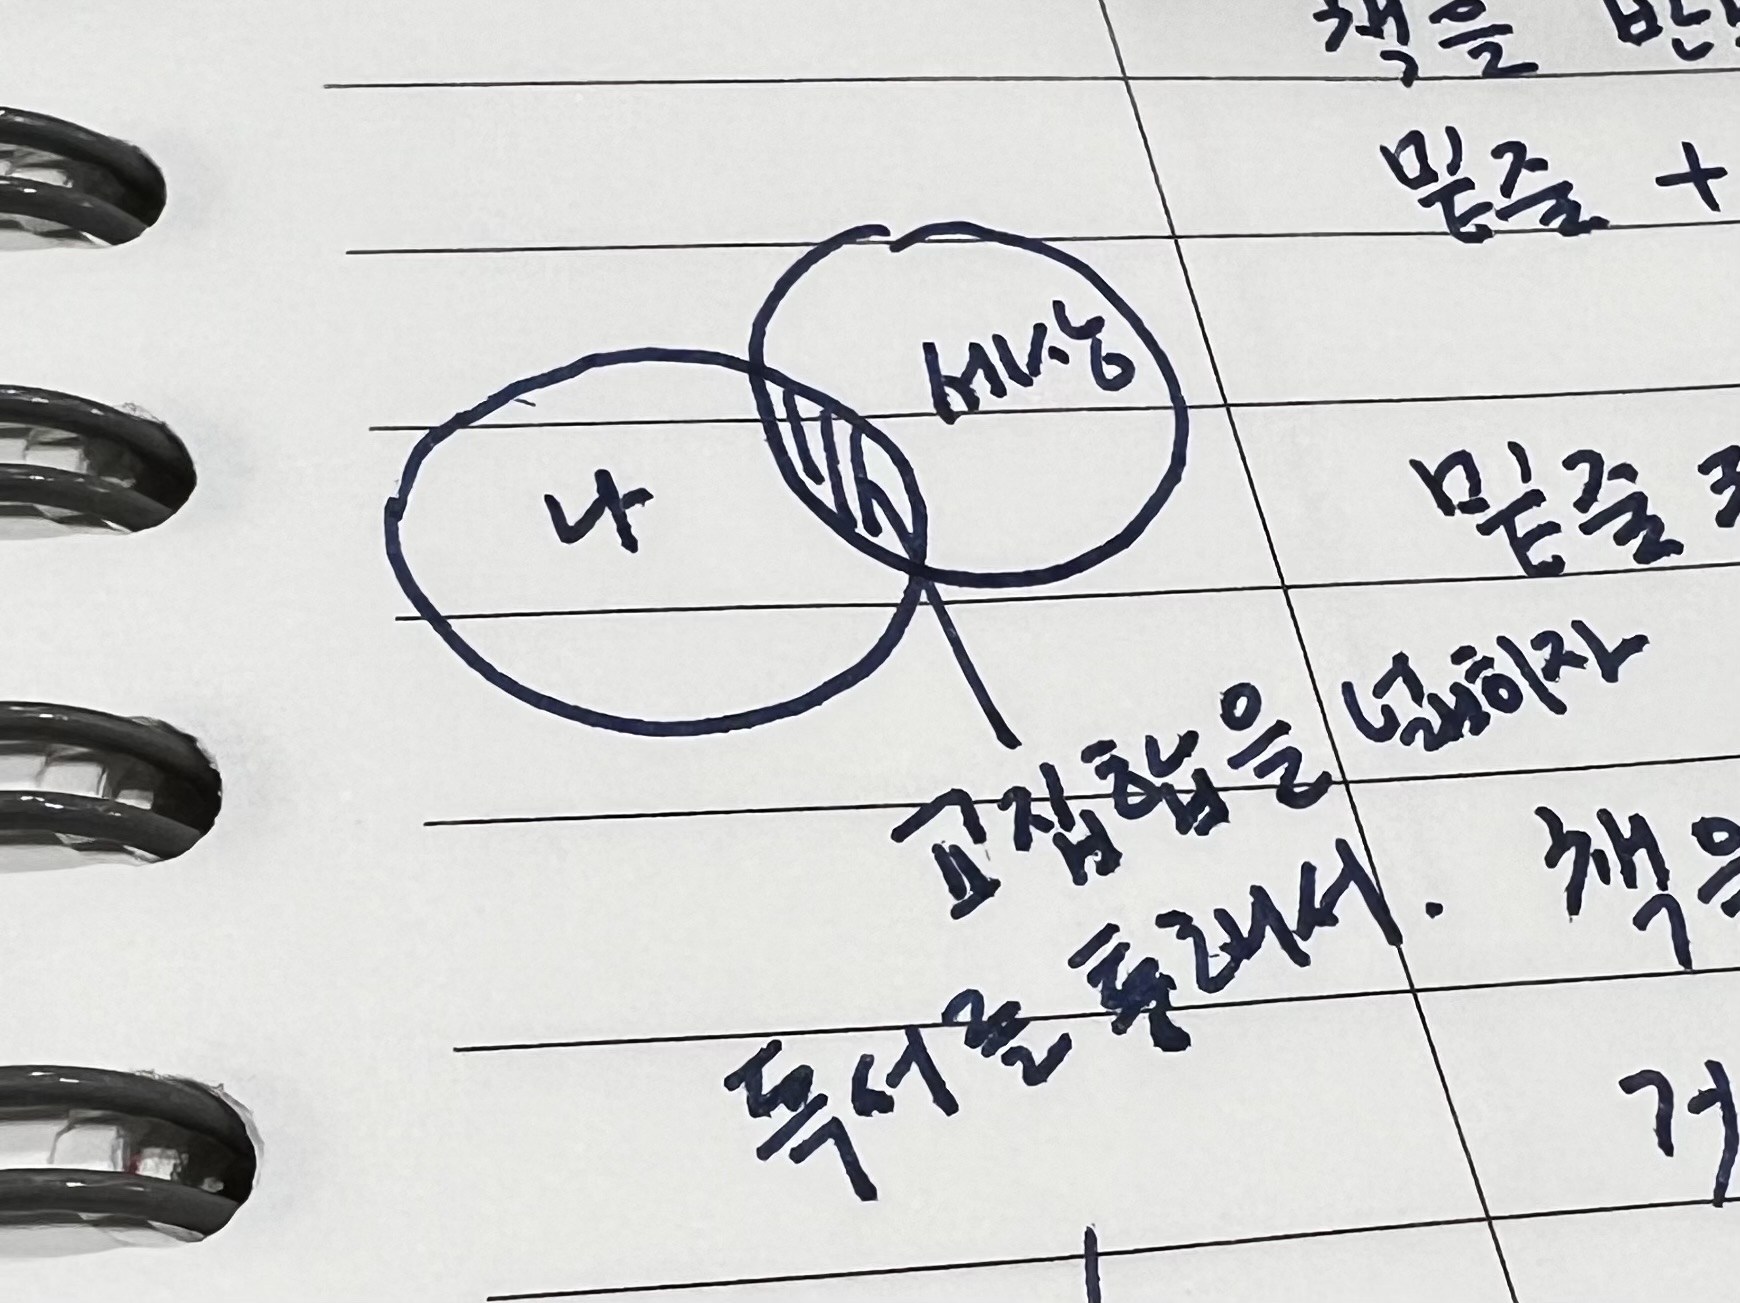 책을
밑줄 +
세상
나
밑줄
교집합을 넓히자
독서를 통해서.
책을
거